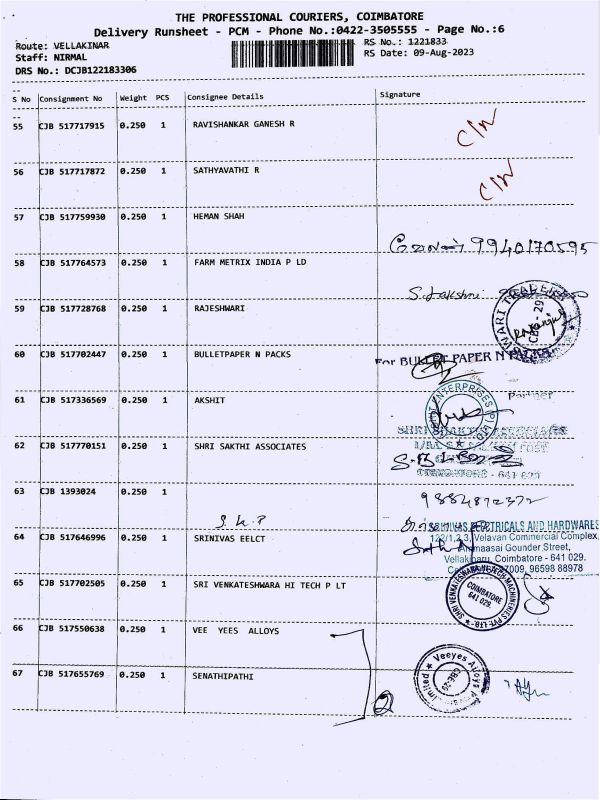 THE PROFESSIONAL COURIERS, COIMBATORE
Delivery Runsheet - PCM - Phone No.:0422-3505555 - Page No.:6
Route: VELLAKINAR
RS No.: 1221833
Staff: NIRMAL
RS Date: 09-Aug-2023
DRS No.: DCJB122183306
S No Consignment No Weight PCS Consignee Details Signature
55 CJB 517717915 0.250 1 RAVISHANKAR GANESH R
56 CJB 517717872 0.250 1 SATHYAVATHI R
57 CJB 517759930 0.250 1 HEMAN SHAH
9940170595
58 CJB 517764573 0.250 1 FARM METRIX INDIA P LD
S. Lakshmi
59 CJB 517728768 0.250 1 RAJESHWARI
60 CJB 517702447 0.250 1 BULLETPAPER N PACKS
For BULLET PAPER N PACKS
Partner
61 CJB 517336569 0.250 1 AKSHIT
62 CJB 517770151 0.250 1 SHRI SAKTHI ASSOCIATES
COIMBATORE - 641 029
63 CJB 1393024 0.250 1
9884872372
64 CJB 517646996 0.250 1 SRINIVAS EELCT
SRINIVAS ELECTRICALS AND HARDWARES
122/1,2,3, Velavan Commercial Complex,
Gounder Street,
Vellakinaru, Coimbatore - 641 029.
97009, 96598 88978
65 CJB 517702505 0.250 1 SRI VENKATESHWARA HI TECH P LT
COIMBATORE
641 029.
66 CJB 517550638 0.250 1 VEE YEES ALLOYS
67 CJB 517655769 0.250 1 SENATHIPATHI
Veeyes Alloys